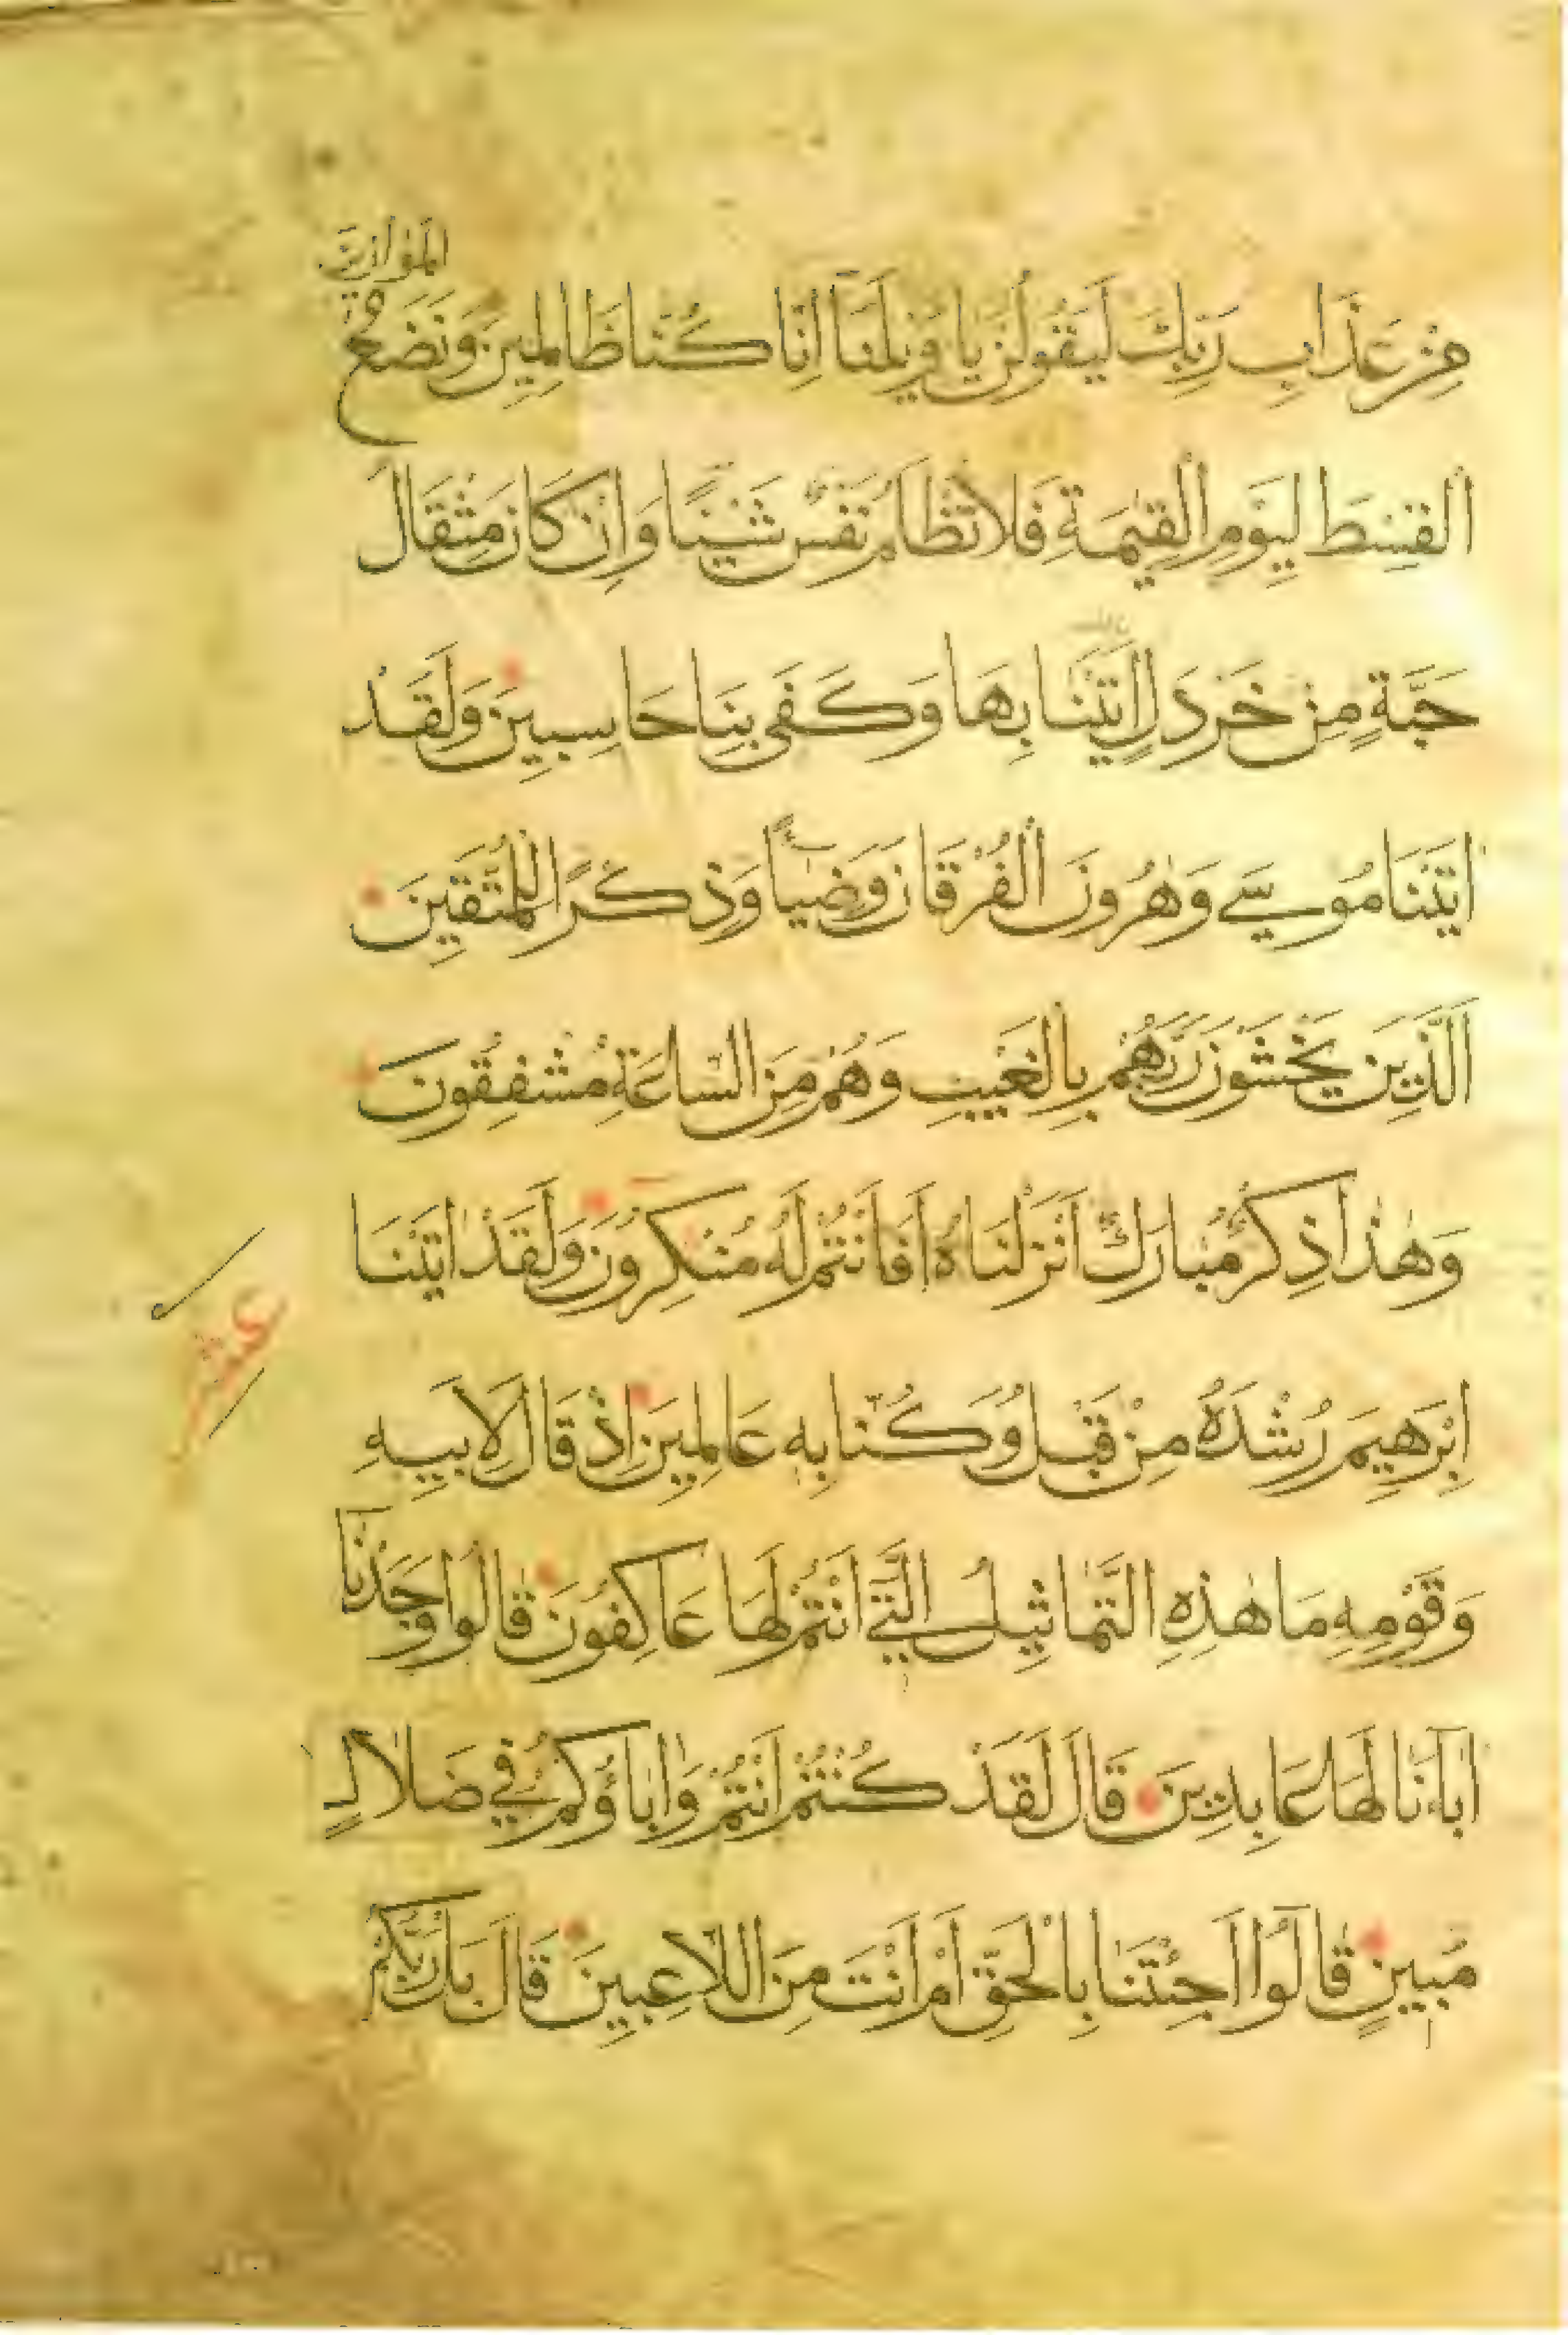 الموازين
مِنْ عَذَابِ رَبِّكَ لَيَقُولُنَّ يَا وَيْلَنَآ اِنَّا كُنَّا ظَالِمِينَ وَنَضَعُ
الْقِسْطَ لِيَوْمِ الْقِيٰمَةِ فَلَا تُظْلَمُ نَفْسٌ شَيْئًا وَاِنْ كَانَ مِثْقَالَ
حَبَّةٍ مِنْ خَرْدَلٍ اَتَيْنَا بِهَا وَكَفَى بِنَا حَاسِبِينَ وَلَقَدْ
اٰتَيْنَا مُوسَي وَهٰرُونَ الْفُرْقَانَ وَضِيَآءً وَذِكْرًا لِلْمُتَّقِينَ
اَلَّذِينَ يَخْشَوْنَ رَبَّهُمْ بِالْغَيْبِ وَهُمْ مِنَ السَّاعَةِ مُشْفِقُونَ
وَهٰذَا ذِكْرٌ مُبَارَكٌ اَنْزَلْنَاهُ اَفَاَنْتُمْ لَهُ مُنْكِرُونَ وَلَقَدْ اٰتَيْنَا
عشر
اِبْرَهِيمَ رُشْدَهُ مِنْ قَبْلُ وَكُنَّا بِهِ عَالِمِينَ اِذْ قَالَ لِاَبِيهِ
وَقَوْمِهِ مَا هٰذِهِ التَّمَاثِيلُ الَّتِي اَنْتُمْ لَهَا عَاكِفُونَ قَالُوا وَجَدْنَآ
اٰبَآءَنَا لَهَا عَابِدِينَ قَالَ لَقَدْ كُنْتُمْ اَنْتُمْ وَاٰبَاؤُكُمْ فِي ضَلَالٍ
مُبِينٍ قَالُوا اَجِئْتَنَا بِالْحَقِّ اَمْ اَنْتَ مِنَ اللَّاعِبِينَ قَالَ بَل رَبُّكُمْ